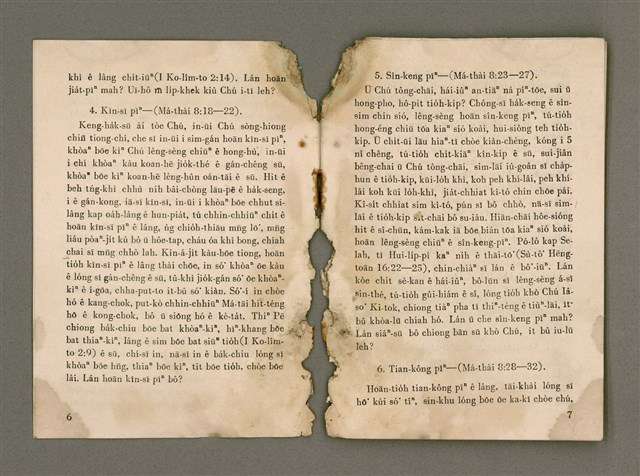 khì ê lâng chit-iūⁿ(I Ko-lîm-to 2:14). Lán hoān
jia̍t-pīⁿ mah? Uī-hô m̄ li̍p-khek kiû Chú i-tī leh?
4. Kīn-sī pīⁿ—(Má-thài 8:18—22).
Keng-ha̍k-sū ài tòe Chú, in-ūi Chú sòng-hiong
chiū tiong-chí, che sī in-ūi i sim-gán hoān kīn-sī pīⁿ,
khòaⁿ bōe kìⁿ Chú lêng-sèng chiūⁿ ê hong-hù, in-ūi
i chí khòaⁿ kàu koan-hē jio̍k-thé ê gán-chêng sū,
bōe khòaⁿ kìⁿ koan-hē lêng-hûn oán-tāi ê sū. Hit ê
beh tńg-khì chhú nih bâi-chòng lāu-pē ê ha̍k-seng,
i ê gán-kong, iā-sī kīn-sī, in-ūi i khòaⁿ bōe chhut sì-
lâng kap oa̍h-lâng ê hun-piat, tú chhin-chhiūⁿ chit ê
hoān kīn-sī pīⁿ ê lâng, n̍g chio̍h-thiāu mn̄g lō͘, mn̄g
liáu pòaⁿ-ji̍t kú bô ū hôe-tap, cháu óa khì bong, chiah
chai sī mn̄g chhò lah. Kin-á-ji̍t kàu-hōe tiong, hoān
tio̍h kīn-sī pīⁿ ê lâng thài chōe, in só͘ khòaⁿ ōe kàu
ê lóng sī gán-chêng ê sū, tú-khì jio̍k-gán só͘ ōe khòaⁿ-
kìⁿ ê í-gōa, chha-put-to it-bû só͘ kiàn. Só͘-í in chòe
hó ê kang-chok, put-kò chhin-chhiūⁿ Má-tāi hit-téng
hō ê kong-chok, bô ū siōng hó ê kè-ta̍t. Thiⁿ Pē
chiong ba̍k-chiu bōe bat khòaⁿ-kìⁿ, hīⁿ-khang bōe
bat thiaⁿ-kìⁿ, lâng ê sim bōe bat siūⁿ tio̍h(I Ko-lîm-
to 2:9) ê sū, chí-sī in, nā-sī in ê ba̍k-chiu lóng sī
khòaⁿ bōe hn̄g, thiaⁿ bōe kìⁿ, tit bōe tio̍h, chòe bōe
lâi. Lán hoān kīn-sī pīⁿ bô?
6
5. Sîn-keng pīⁿ—(Má-thài 8:23—27).
Ū Chú tông-chāi, hái-iūⁿ an-tiāⁿ ná pîⁿ-tōe, sui ū
hong-pho, hô-pit tio̍h-kip? Chóng-sī ha̍k-seng ê sîn-
sim chin sió, lêng-sèng hoān sîn-keng pīⁿ, tú-tio̍h
hong-éng chiū tōa kiaⁿ sió koài, hui-siông teh tio̍h-
kip. Ū chit-ūi lāu hiaⁿ-tī chòe kiàn-chèng, kóng i 5
nî chêng, tú-tio̍h chit-kiāⁿ kín-kip ê sū, sui-jiân
bêng-chai ū Chú tông-chāi, sim-lāi iú-goân sī cha̍p-
hun ê tio̍h-kip, kūi-lo̍h khì, koh peh khí-lâi, peh khí-
lâi koh kūi lo̍h-khì, jia̍t-chhiat kî-tó chin chōe pái.
Kî-si̍t chhiat sim kî-tó, pún sī bô chhò, nā-sī sim-
lāi ê tio̍h-kip si̍t-chāi bô su-iàu. Hiān-chāi hōe-sióng
hit ê sî-chūn, kám-kak iā bōe bián tōa kiaⁿ sió koài,
hoān lêng-sèng chiūⁿ ê sîn-keng-pīⁿ. Pó-lô kap Se-
lah, tī Hui-li̍p-pí kaⁿ nih ê thāi-tō͘(Sù-tô͘ Hêng-
toān 16:22—25), chin-chiàⁿ sī lán ê bô͘-iūⁿ. Lán
kòe chit sè-kan ê hái-iūⁿ, bô-lūn sī lêng-sèng á-sī
sin-thé, tú-tio̍h gûi-hiám ê sî, lóng tio̍h khò Chú Iâ-
so͘ Ki-tok, chiong tiāⁿ pha tī thiⁿ-téng ê tiūⁿ-lāi, it-
bû khòa-lū chiah hó. Lán ū che sîn-keng pīⁿ mah?
Lán siáⁿ-sū bô chiong bān sū khò Chú, it bû iu-lū
leh?
6. Tian-kông pīⁿ—(Má-thài 8:28—32).
Hoān-tio̍h tian-kông pīⁿ ê lâng, tāi-khài lóng sī
hō͘ kúi só͘ tîⁿ, sin-khu lóng bōe ōe ka-kī chòe chú,
7